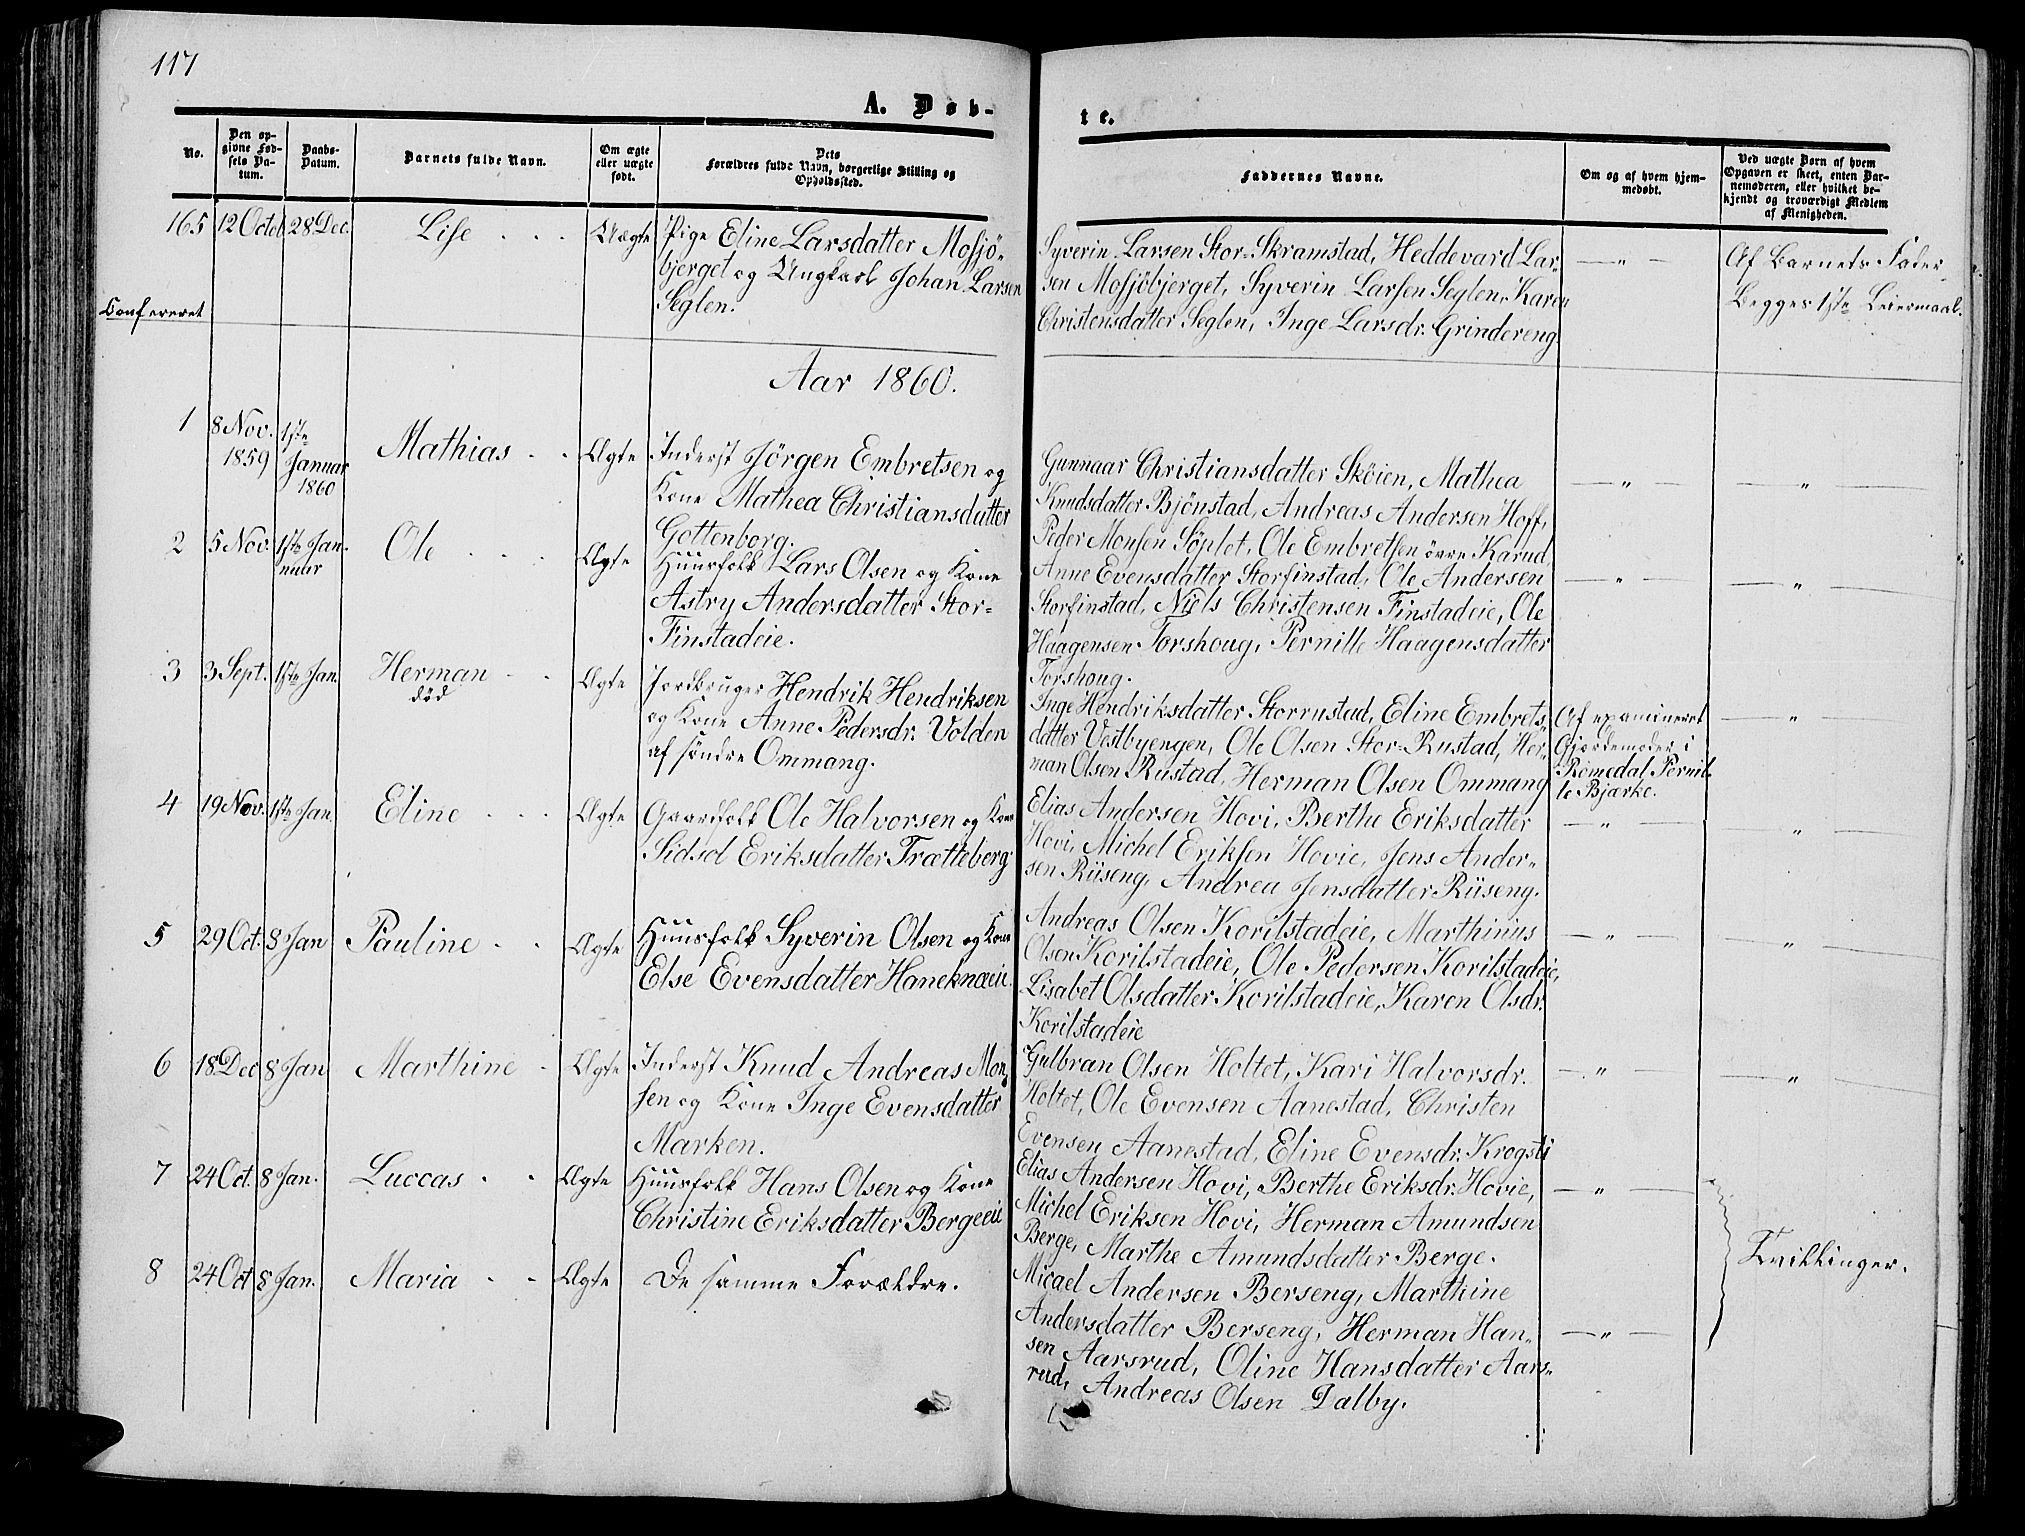 117
A. Døb-
te.
No.
Den op-
givne Fød-
sels Da-
tum.
Daabs-
Datum.
Barnets fulde Navn.
Om ægte
eller uægte
født.
Dets
Forældres fulde Navn, borgerlige Stilling og
Opholdssted.
Faddernes Navne.
Om og af hvem hjem-
medøbt.
Ved uægte Børn af hvem
Opgaven er skeet, enten Bar-
nemoderen, eller hvilket be-
kjendt og troværdigt Medlem
af Menigheden.
165 12 Octob 28 Dec. Lise . . . Uægte
Pige Eline Larsdatter Mosjö-
bjerget og Ungkarl Johan Larsen
Seglen.
Syverin Larsen Stor-Skramstad, Heddevard Lar-
sen Mosjöbjerget, Syverin Larsen Seglen, Karen
Christensdatter Seglen, Inge Larsdr. Grindereng
— " —
Af Barnets Fader
Begges 1ste Leiermaal.
Confereret
Aar 1860.
1 8 Nov. 1859 1ste Januar 1860 Mathias . . Ægte
Inderst Jörgen Embretsen og
Kone Mathea Christiansdatter
Gottenborg.
Gunnaar Christiansdatter Sköien, Mathea
Knudsdatter Bjönstad, Andreas Andersen Hoff,
Peder Monsen Söplet, Ole Embretsen övre Karud
— " — — " —
2 5 Nov. 1ste Jan- nuar Ole . . . Ægte
Huusfolk Lars Olsen og Kone
Astry Andersdatter Stor-
Finstadeie.
Anne Evensdatter Storfinstad, Ole Andersen
Storfinstad, Niels Christensen Finstadeie, Ole
Haagensen Torshoug, Pernille Haagensdatter
Torshoug.
— " — — " —
3 3 Sept. 1ste Jan. Herman . . Ægte
död
Jordbruger Hendrik Hendriksen
og Kone Anne Pedersdr. Volden
af söndre Ommang.
Inge Hendriksdatter Storrustad, Eline Embrets-
datter Vestbyengen, Ole Olsen Stor-Rustad, Her-
man Olsen Rustad, Herman Olsen Ommang
Af examineret
Gjordemoder i
Romedal Pernil-
le Bjærke.
— " —
4 19 Nov. 1ste Jan. Eline . . . Ægte
Gaardfolk Ole Halvorsen og Kone
Sidsel Eriksdatter Trætteberg
Elias Andersen Hovi, Berthe Eriksdatter
Hovi, Michel Eriksen Hovie, Jens Ander-
sen Riiseng, Andrea Jensdatter Riiseng.
— " — — " —
5 29 Oct. 8 Jan Pauline . . Ægte
Huusfolk Syverin Olsen og Kone
Else Evensdatter Haneknæeie.
Andreas Olsen Korilstadeie, Marthinius
Olsen Korilstadeie, Ole Pedersen Korilstadeie,
Lisabet Olsdatter Korilstadeie, Karen Olsdr.
Korilstadeie
— " — — " —
6 18 Dec 8 Jan Marthine . Ægte
Inderst Knud Andreas Mon-
sen og Kone Inge Evensdatter
Marken.
Gulbran Olsen Holtet, Kari Halvorsdr.
Holtet, Ole Evensen Aanestad, Christen
Evensen Aanestad, Eline Evensdr. Krogsti
— " — — " —
7 24 Oct. 8 Jan. Luccas . . Ægte
Huusfolk Hans Olsen og Kone
Christine Eriksdatter Bergeeie
Elias Andersen Hovi, Berthe Eriksdr. Hovie,
Michel Eriksen Hovi, Herman Amundsen
Berge, Marthe Amundsdatter Berge.
— " —
Tvillinger.
8 24 Oct 8 Jan. Maria . . Ægte
De samme Forældre.
Micael Andersen Berseng, Marthine
Andersdatter Berseng, Herman Han-
sen Aarsrud, Oline Hansdatter Aars-
rud, Andreas Olsen Dalby.
— " —